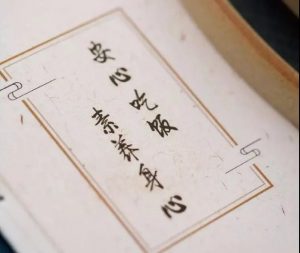 安心吃饭
素养身心